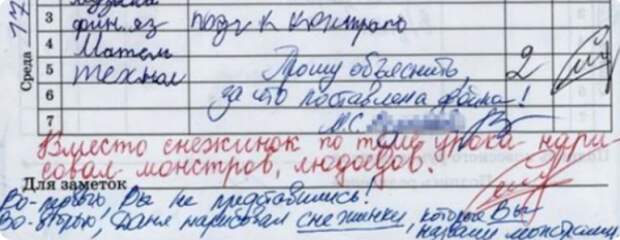 17
3 фин. яз подг к контроль
4 Матем
Среда
5 технол
Прошу объяснить, 2
6 за что поставлена двойка!
7 М.С.
Вместо снежинок по теме урока нари-
совал монстров, людоедов.
Для заметок
Во-первых, Вы не представились!
Во-вторых, Даня нарисовал снежинки, которые Вы
назвали монстрами